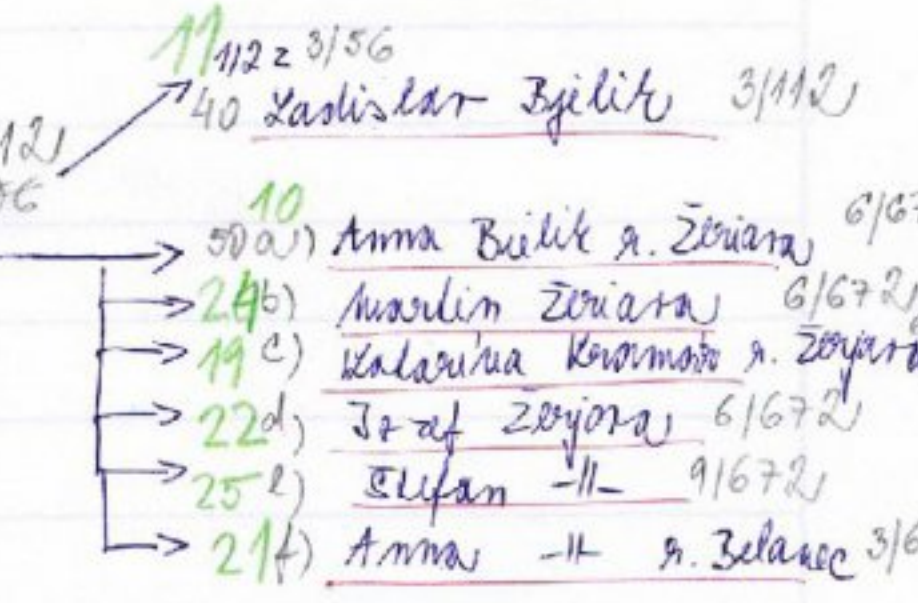 11 1/2 z 3/56
40 Ladislav Bjelik 3/112
12
56
10 6/67
50 a) Anna Bielik r. Žeriara
24 b) Martin Žeriara 6/672
19 c) Katarína r. Žerjara
22 d) Jozef Žerjara 6/672
25 e) Štefan -||- 9/672
21 f) Anna -||- r. Belanec 3/6